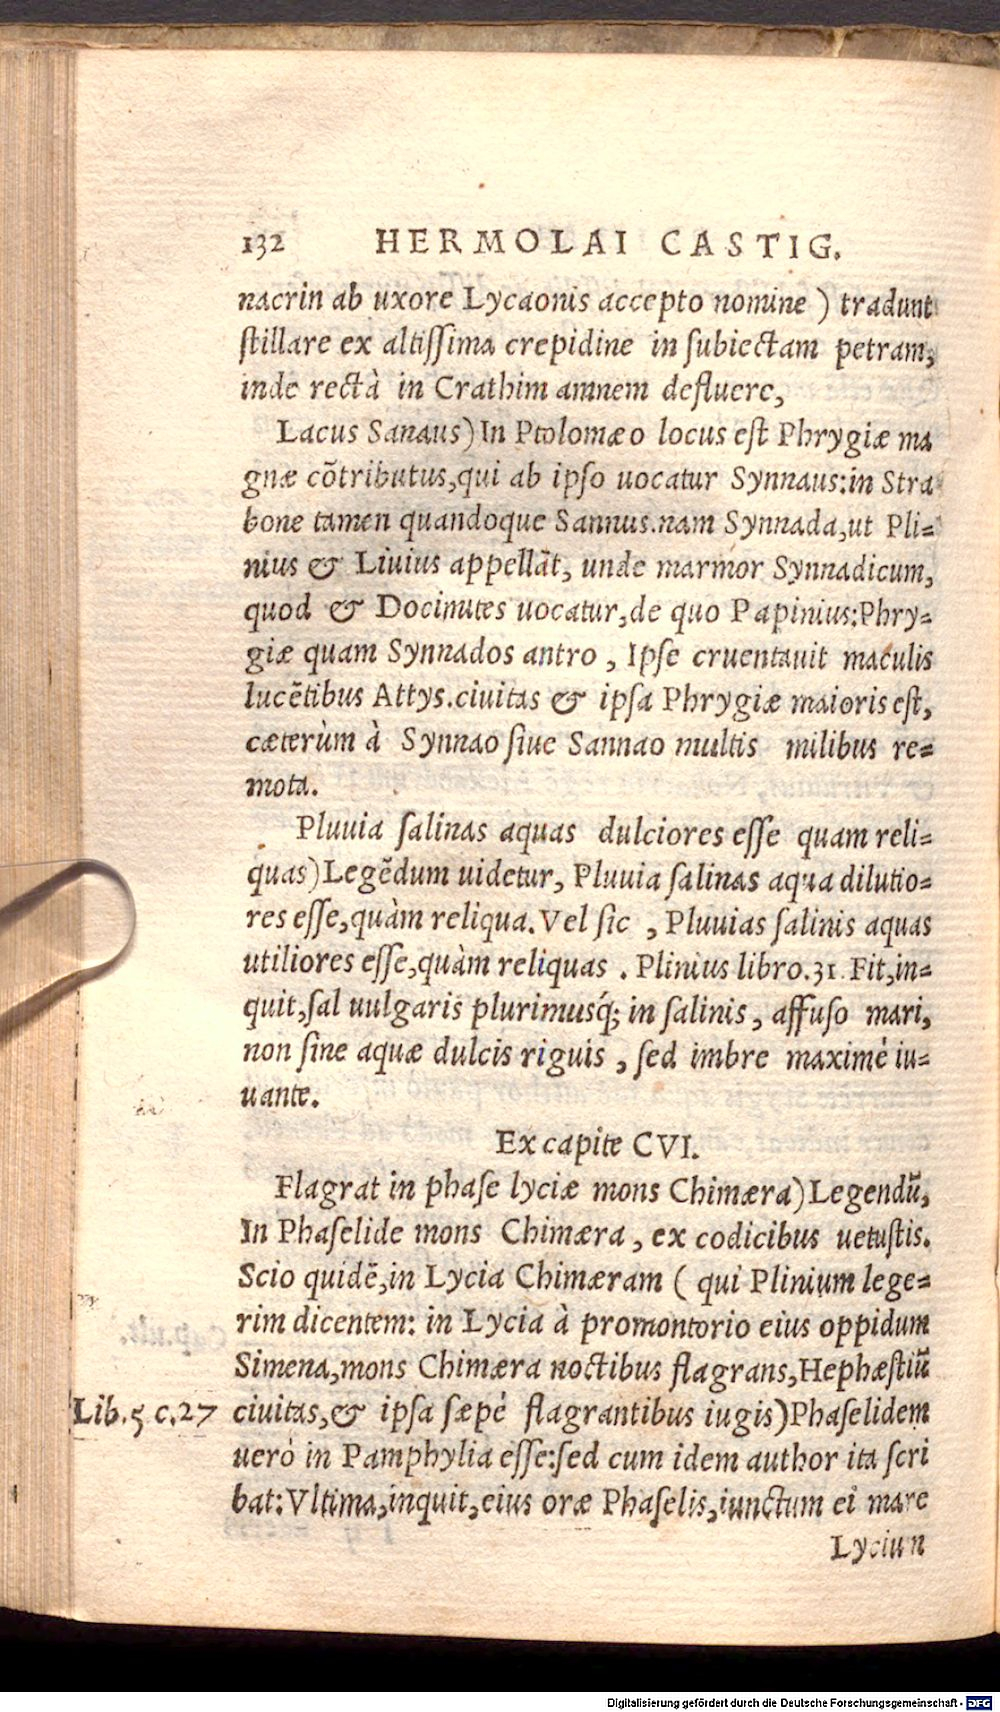 132 HERMOLAI CASTIG.
nacrin ab uxore Lycaonis accepto nomine ) tradunt
ſtillare ex altiſſima crepidine in ſubiectam petram,
inde rectà in Crathim amnem defluere,
Lacus Sanaus) In Ptolomæo locus eſt Phrygiæ ma
gnæ cõtributus, qui ab ipſo uocatur Synnaus: in Stra
bone tamen quandoque Sannus. nam Synnada, ut Pli=
nius & Liuius appellãt, unde marmor Synnadicum,
quod & Docinutes uocatur, de quo Papinius: Phry=
giæ quam Synnados antro, Ipſe cruentauit maculis
lucẽtibus Attys. ciuitas & ipſa Phrygiæ maioris eſt,
cæterùm à Synnao ſiue Sannao multis milibus re=
mota.
Pluuia ſalinas aquas dulciores eſſe quam reli=
quas) Legẽdum uidetur, Pluuia ſalinas aqua dilutio=
res eſſe, quàm reliqua. Vel ſic, Pluuias ſalinis aquas
utiliores eſſe, quàm reliquas. Plinius libro. 31. Fit, in=
quit, ſal uulgaris plurimusq́; in ſalinis, affuſo mari,
non ſine aquæ dulcis riguis, ſed imbre maximè iu=
uante.
Ex capite CVI.
Flagrat in phaſe lyciæ mons Chimæra) Legendũ,
In Phaſelide mons Chimæra, ex codicibus uetuſtis.
Scio quidẽ, in Lycia Chimæram ( qui Plinium lege=
rim dicentem: in Lycia à promontorio eius oppidum
Simena, mons Chimæra noctibus flagrans, Hephæſtiũ
Lib. 5 c. 27 ciuitas, & ipſa ſæpè flagrantibus iugis) Phaſelidem
uerò in Pamphylia eſſe: ſed cum idem author ita ſcri
bat: Vltima, inquit, eius oræ Phaſelis, iunctum ei mare
Lyciun
Digitalisierung gefördert durch die Deutsche Forschungsgemeinschaft - DFG